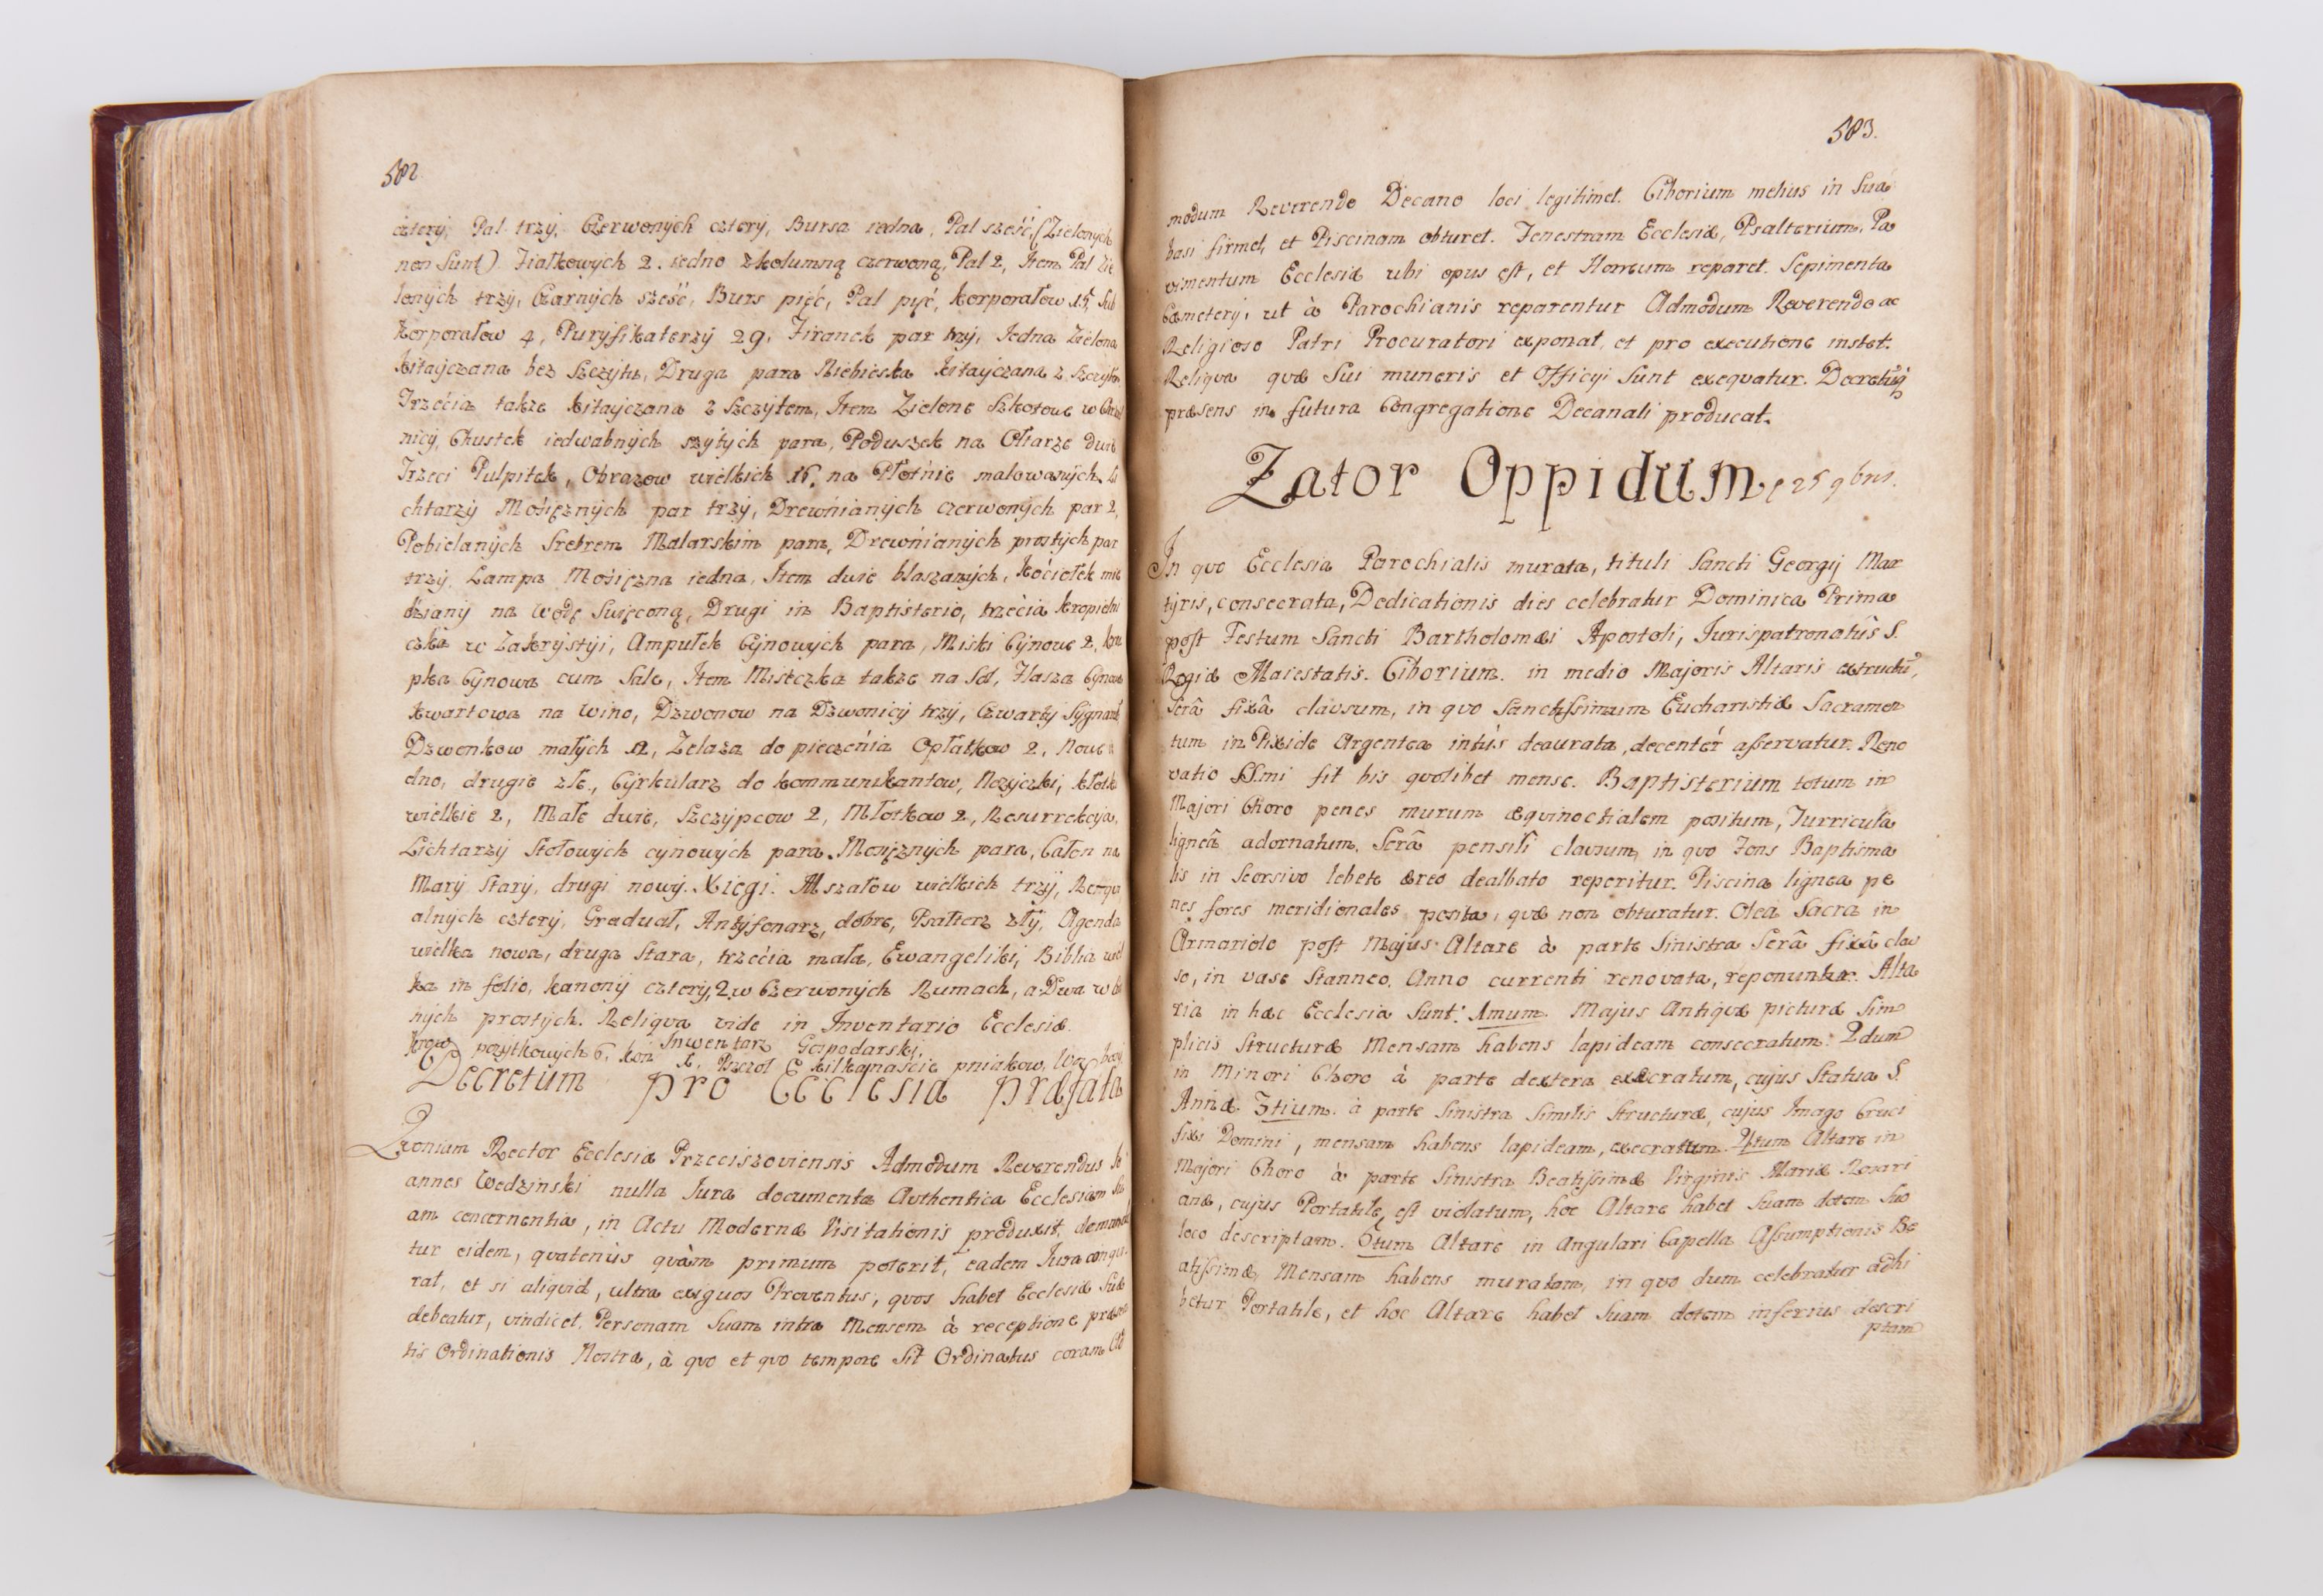 582.
cztery, Pal trzy, Czerwonych cztery, Bursa iedna, Pal sześć, (Zielonych
non sunt) Fiałkowych 2. iedno z kolumną czerwoną, Pal 2, Item Pal Zie
lonych trzy, Czarnych sześć, Burs pięć, Pal pięć, korporałow 15, Sub
korporałow 4, Puryfikaterzy 29, Firanek par trzy, Iedna Zielona
kitayczana bez Szczytu, Druga para Niebieska kitayczana z Szczytem
Trzecia także kitayczana z Szczytem, Item Zielone Szkotowe w
nicy, Chustek iedwabnych szytych para, Poduszek na Ołtarze dwie
Trzeci Pulpitek, Obrazow wielkich 16, na Płotnie malowanych, Li
chtarzy Mosięznych par trzy, Drewnianych czerwonych par 2,
Pobielanych Srebrem Malarskim para, Drewnianych prostych par
trzy, Lampa Mosięzna iedna, Item dwie blaszanych, kociołek mie
dziany na Wodę Swięconą, Drugi in Baptisterio, trzecia kropielni
czka w Zakrystyi, Ampułek Cynowych para, Miski Cynowe 2,
pka Cynowa cum Sale, Item Miseczka także na Sol, Flasza Cynowa
kwartowa na Wino, Dzwonow na Dzwonicy trzy, Czwarty Sygnarek
Dzwonkow małych 12, Zelaza do pieczenia Opłatkow 2, Nowe ie
dno, drugie złe, Cyrkularz do kommunikantow, Nozyczki, kłotki
wielkie 2, Małe dwie, Szczypcow 2, Młotkow 2, Resurrekcya,
Lichtarzy Stołowych cynowych para, Mosięznych para, Całon na
Mary Stary, drugi nowy. Xięgi. Mszałow wielkich trzy, Requi
alnych cztery, Graduał, Antyfonarz, dobre, Psałterz zły, Agenda
wielka nowa, druga Stara, trzecia mała, Ewangeliki, Biblia wiel
ka in folio, kanony cztery, 2 w Czerwonych Rumach, a Dwa w
nych prostych. Reliqva vide in Inventario Ecclesiæ.
Inwentarz Gospodarski.
krow pozytkowych 6, koń 1, Pszczoł kilkanaście pniakow, Woz
Decretum pro Ecclesia præfata
Qvoniam Rector Ecclesiæ Przeciszoviensis Admodum Reverendus Jo
annes Wedzinski nulla Iura documenta Authentica Ecclesiam Su
am concernentia, in Actu Modernæ Visitationis produxit, demanda
tur eidem, qvatenùs qvàm primum poterit, eadem Iura conqui
rat, et si aliqvid, ultra exiguos Proventus, qvos habet Ecclesiæ Suæ
debeatur, vindicet. Personam Suam intra Mensem à receptione præsen
tis Ordinationis Nostræ, à qvo et qvo tempore Sit Ordinatus coram Ad
583.
modum Reverendo Decano loci legitimet. Ciborium melius in Sua
basi firmet, et Piscinam obturet. Fenestram Ecclesiæ, Psalterium, Pa
vimentum Ecclesiæ ubi opus est, et Horreum reparet. Sepimenta
Cæmeteryi ut à Parochianis reparentur Admodum Reverendo ac
Religioso Patri Procuratori exponat, et pro executione instet.
Reliqva qvæ Sui muneris et Officyi Sunt exeqvatur. Decretumq
præsens in futura Congregatione Decanali producat.
Zator Oppidum, 25 9bris.
In qvo Ecclesia Parochialis murata, tituli Sancti Georgij Mar
tyris, consecrata, Dedicationis dies celebratur Dominica Prima
post Festum Sancti Bartholomæi Apostoli, Jurispatronatûs S.
Regiæ Maiestatis. Ciborium in medio Majoris Altaris extructũ,
Serâ fixâ clavsum, in qvo Sanctissimum Eucharistiæ Sacramen
tum in Pixide Argentea intùs deaurata, decentèr asservatur. Reno
vatio SS.mi fit bis qvolibet mense. Baptisterium totum in
Majori Choro penes murum æqvinoctialem positum, Turricula
ligneâ adornatum, Serâ pensili clavsum, in qvo Fons Baptisma
lis in Seorsivo lebete æreo dealbato reperitur. Piscina lignea pe
nes fores meridionales posita, qvæ non obturatur. Olea Sacra in
Armariolo post Majus Altare à parte Sinistra Serâ fixâ clav
so, in vase Stanneo, Anno currenti renovata, reponuntur. Alta
ria in hac Ecclesia Sunt: 1mum Majus Antiqvæ picturæ Sim
plicis Structuræ Mensam habens lapideam consecratum. 2dum
in Minori Choro à parte dextera execratum, cujus Statua S.
Annæ. 3tium à parte Sinistra Similis Structuræ, cujus Imago Cruci
fixi Domini, mensam habens lapideam, execratum. 4tum Altare in
Majori Choro à parte Sinistra Beatissimæ Virginis Mariæ Rosari
anæ, cujus Portatile est violatum, hoc Altare habet Suam dotem Suo
loco descriptam. 5tum Altare in Angulari Capella Assumptionis Be
atissimæ, Mensam habens muratam, in qvo dum celebratur adhi
betur Portatile, et hoc Altare habet Suam dotem inferius descri
ptam